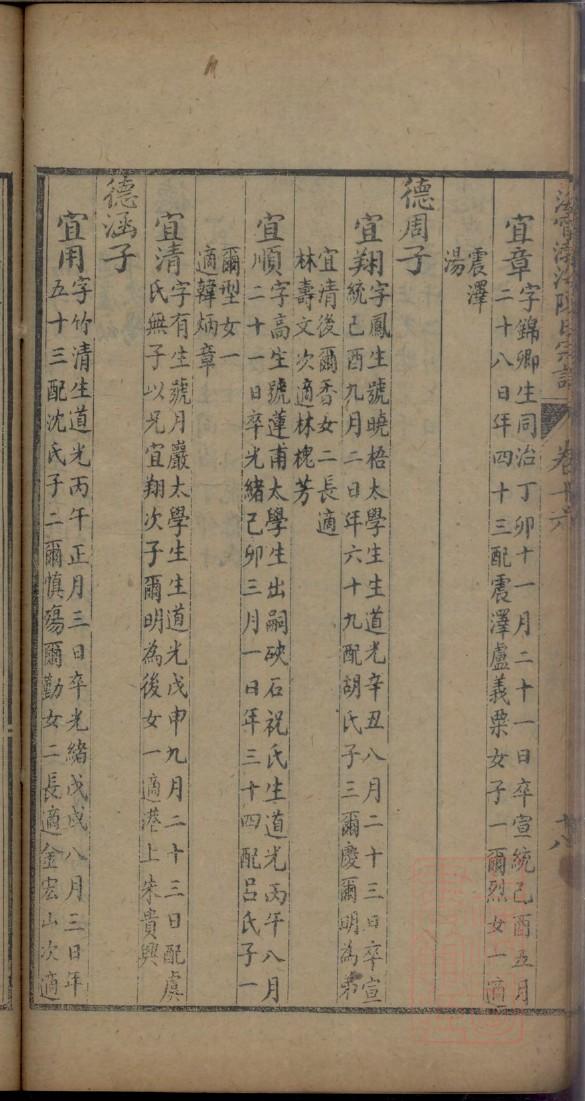 海寧漁浴陳氏宗譜 卷十六 十八
宜章字錦卿生同治丁卯十一月二十一日卒宣統己酉五月
二十八日年四十三配震澤盧義栗女子一爾烈女一適
震澤
湯
德周子
宜翔字鳳生號曉梧太學生生道光辛丑八月二十三日卒宣
統己酉九月二日年六十九配胡氏子三爾慶爾明為弟
宜清後爾香女二長適
林壽文次適林槐芳
宜順字高生號蓮甫太學生出嗣硤石祝氏生道光丙午八月
二十一日卒光緒己卯三月一日年三十四配呂氏子一
爾型女一
適韓炳章
宜清字有生號月巖太學生生道光戊申九月二十三日配虞
氏無子以兄宜翔次子爾明為後女一適港上朱貴興
德涵子
宜用字竹清生道光丙午正月三日卒光緒戊戌八月三日年
五十三配沈氏子二爾慎殤爾勤女二長適金宏山次適